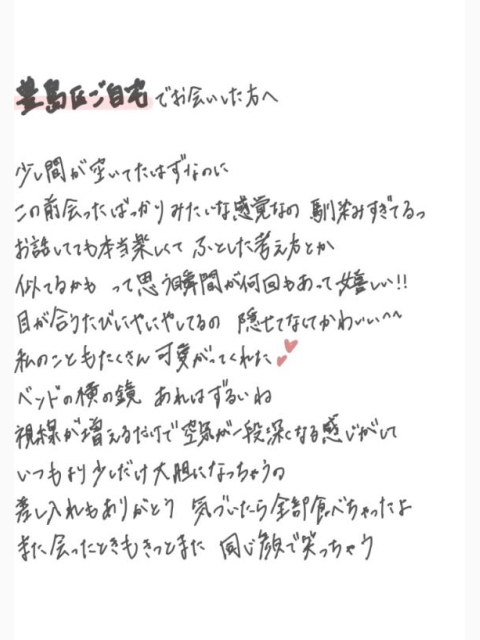 豊島区ご自宅でお会いした方へ
少し間が空いてたはずなのに
この前会ったばっかりみたいな感覚なの 馴染みすぎてるっ
お話してても本当楽しくて ふとした考え方とか
似てるかも って思う瞬間が何回もあって嬉しい!!
目が合うたびにやにやしてるの 隠せてなくてかわいい〜〜
私のこともたくさん可愛がってくれた
ベッドの横の鏡 あれはずるいね
視線が増えるだけで空気が一段深くなる感じがして
いつもより少しだけ大胆になっちゃうの
差し入れもありがとう 気づいたら全部食べちゃったよ
また会ったときもきっとまた 同じ顔で笑っちゃう